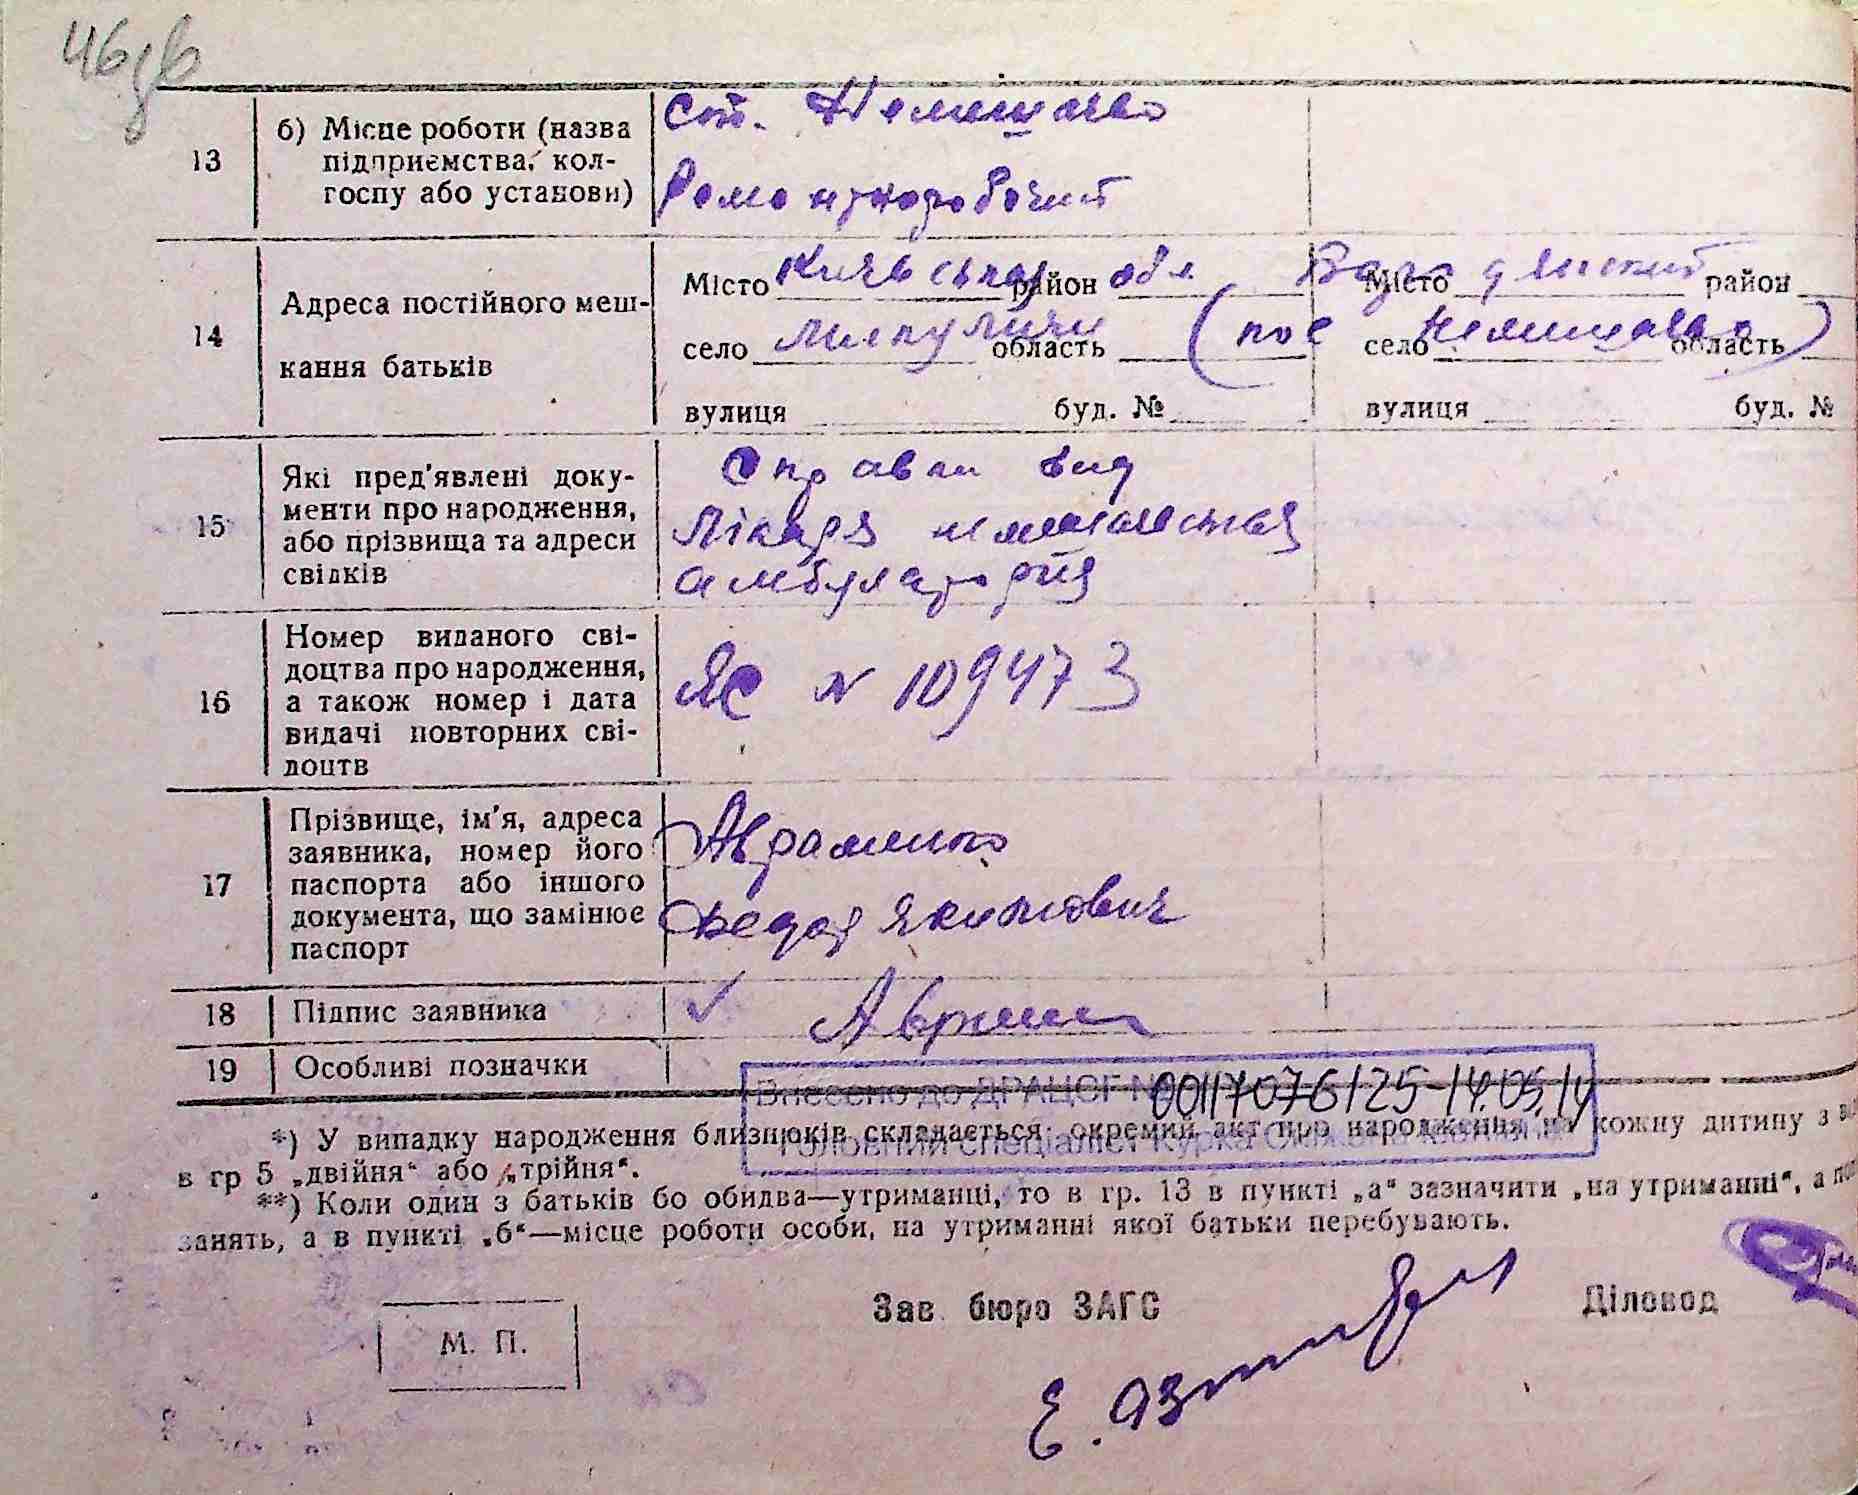 46зв
13
б) Місце роботи (назва
підприємства, кол-
госпу або установи)
Ст. Немешаєво
Ремонтноробочий
14
Адреса постійного меш-
кання батьків
Місто Київська район обл Бородянский Місто район
село Микуличи область (пос Немешаєво) село область
вулиця буд. № вулиця буд. №
15
Які пред'явлені доку-
менти про народження,
або прізвища та адреси
свідків
Справки вид
Лікаря
амбулаторія
16
Номер виданого сві-
доцтва про народження,
а також номер і дата
видачі повторних сві-
доцтв
ЯС № 109473
17
Прізвище, ім'я, адреса
заявника, номер його
паспорта або іншого
документа, що замінює
паспорт
Авраменко
Федор Якимович
18
Підпис заявника
✓ Аврамен
19
Особливі позначки
Внесено до ДРАЦСГ № 00117076125-14.05.14
Головний спеціаліст Курка
*) У випадку народження близнюків складається окремий акт про народження на кожну дитину з
в гр 5 „двійня“ або „трійня“.
**) Коли один з батьків бо обидва—утриманці, то в гр. 13 в пункті „а“ зазначити „на утриманні“, а
занять, а в пункті „б“—місце роботи особи, на утриманні якої батьки перебувають.
Зав. бюро ЗАГС
Діловод
М. П.